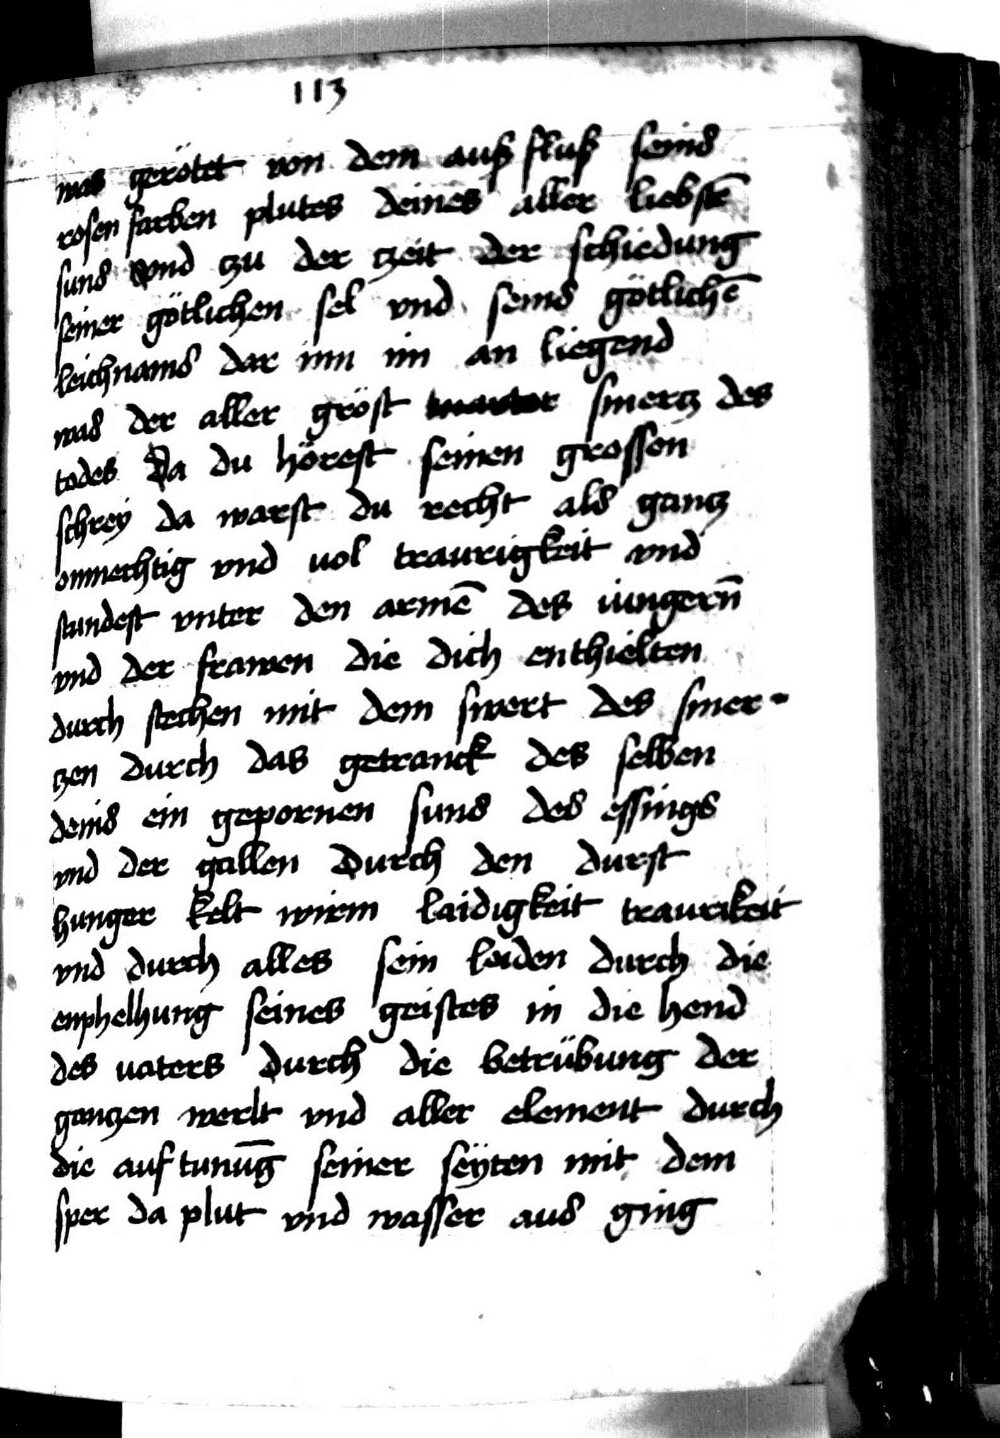 113
was gerötet von dem auß fluß seins
rosen farben plutes deines aller liebstē
suns Vnd tzu der tzeit der schiedung
seiner götlichen sel vnd seins götlichē
leichnams dar inn im an liegend
was der aller gröst smertz des
todes Da du hörest seinen grossen
schrey da warst du recht als gantz
onmechtig vnd vol traurigkeit vnd
stundest vnter den armē des iungern̄
vnd der frawen die dich enthielten
durch stechen mit dem swert des smer-
tzen durch das getranck des selben
deins ein gepornen suns des essings
vnd der gallen Durch den durst
hunger kelt wirm laidigkeit traurikeit
vnd durch alles sein leiden durch die
enphelhung seines geistes in die hend
des vaters Durch die betrübung der
gantzen werlt vnd aller element durch
die auf tunūg seiner seÿten mit dem
sper da plut vnd wasser aus ging